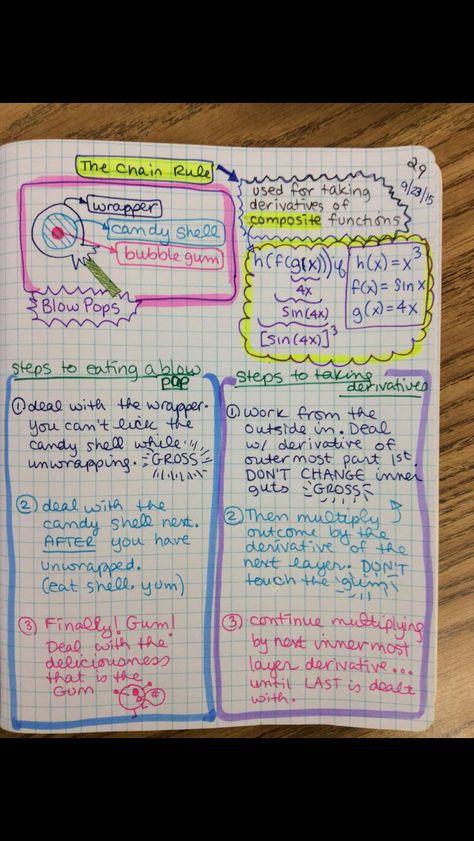 The Chain Rule
29
9/23/15
used for taking
derivatives of
composite functions
wrapper
candy shell
bubble gum
Blow Pops
h(f(g(x))) if
4x
Sin(4x)
[sin(4x)]³
h(x)=x³
f(x)= Sin x
g(x)=4x
steps to eating a blow
pop
① deal with the wrapper.
You can't lick the
candy shell while
unwrapping. GROSS
② deal with the
candy shell next.
AFTER you have
unwrapped.
(eat shell. yum)
③ Finally! Gum!
Deal with the
deliciousness
that is the
Gum
steps to taking
derivatives
① work from the
outside in. Deal
w/ derivative of
outermost part 1st.
DON'T CHANGE inner
guts GROSS
② Then multiply
outcome by the
derivative of the
next layer. DON'T
touch the gum
③ continue multiplying
by next innermost
layer derivative...
until LAST is dealt
with.